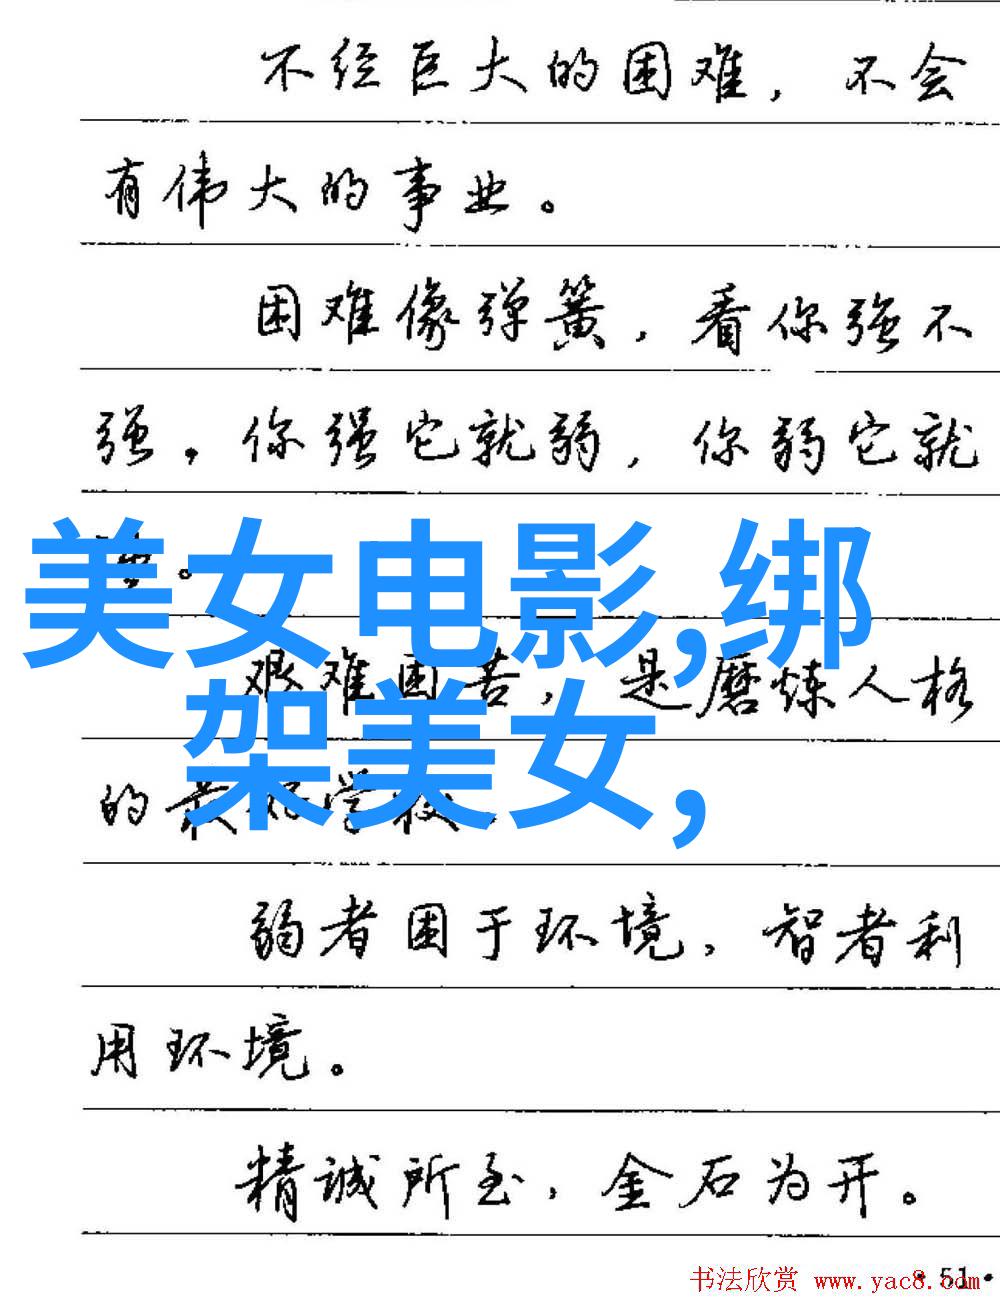 不经巨大的困难，不会
有伟大的事业。
困难像弹簧，看你强不
强。你强它就弱，你弱它就
。
美女电影,绑
架美女,
艰难困苦，是磨炼人格
的最好学校。
弱者困于环境，智者利
用环境。
精诚所至，金石为开。
·51·
书法欣赏 www.yac8.com